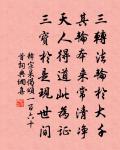 三轉法輪於大千
其輪本來常清淨
天人得道此為證
三寶於是現世間
偈頌一百六十
首詞典網